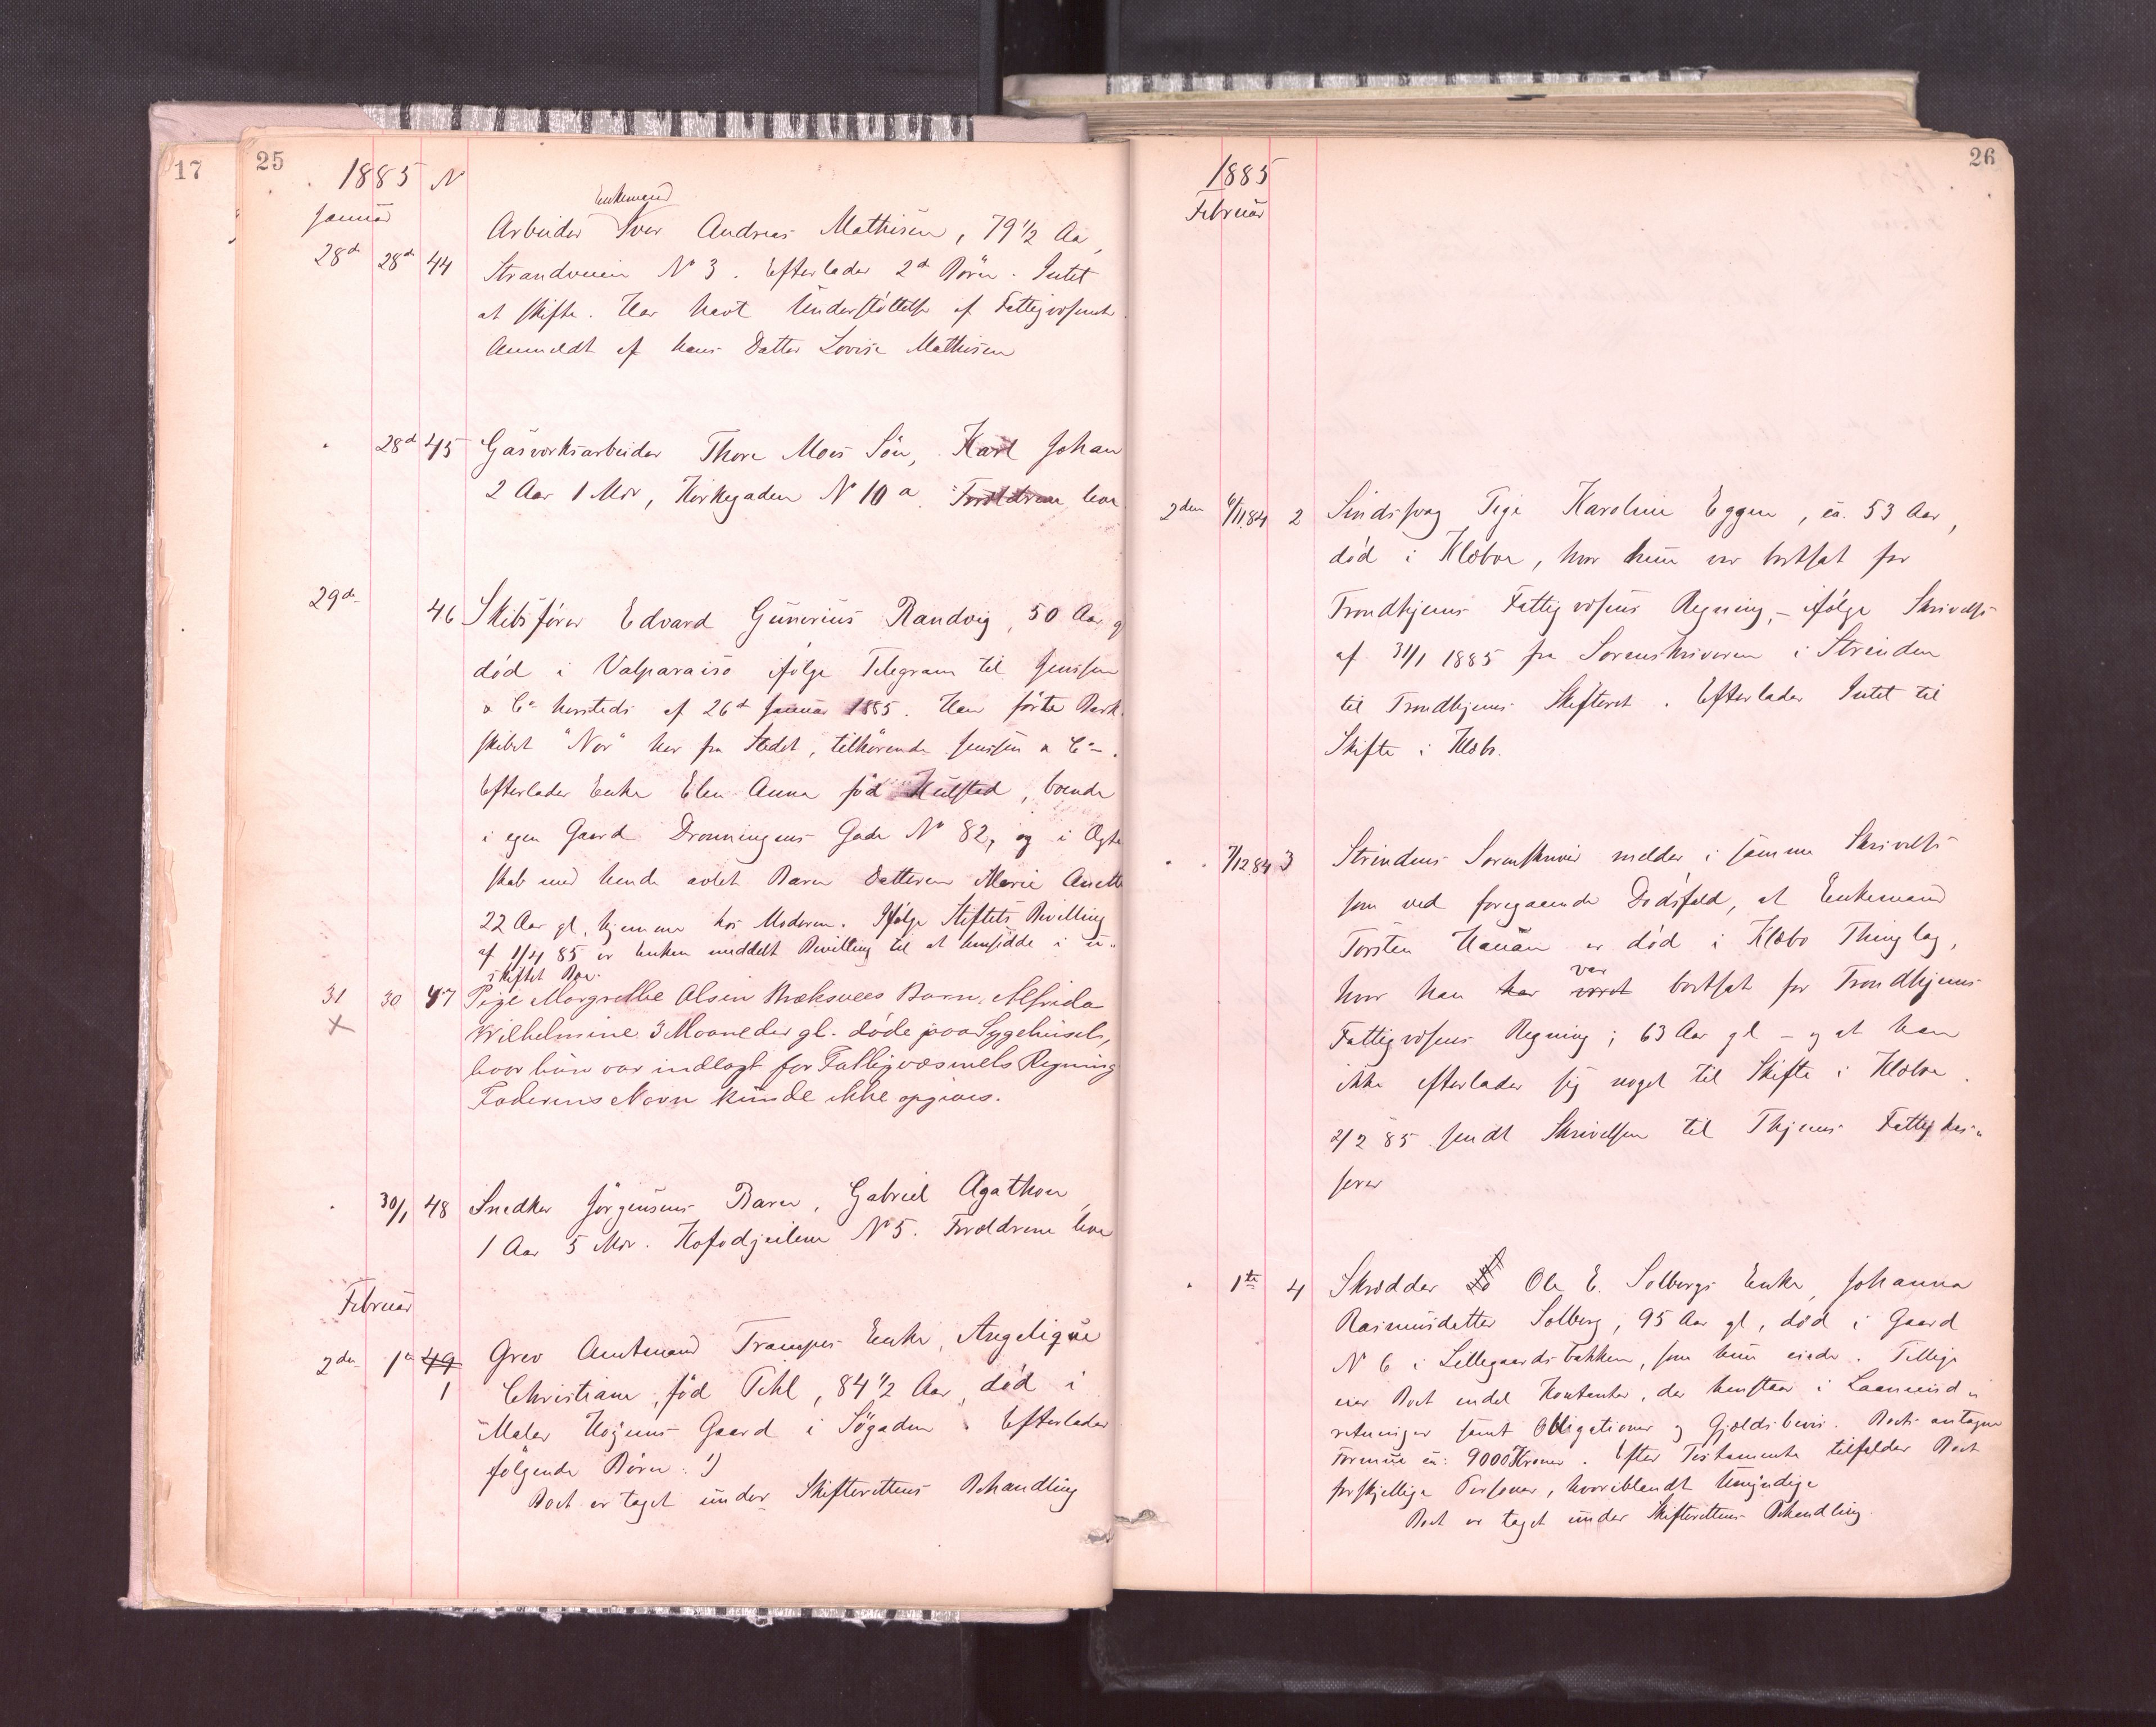 17
25
1885 N
Januar
Enkemand
Arbeider Iver Andreas Mathisen, 79 1/2 Aar,
28de 28de 44 Strandveien No 3. Efterlader 2de Börn. Intet
at skifte. Har havt Understöttelse af Fattigvæsenet.
Anmeldt af hans Datter Lovise Mathisen
" 28de 45 Gasværksarbeider Thore Moes Sön, Karl Johan
2 Aar 1 Md, Kirkegaden No 10 a. Forældrene leve
29de 46 Skibsförer Edvard Gunerius Randvig, 50 Aar g
död i Valparaiso ifölge Telegram til Jenssen
& Co hersteds af 26de Januar 1885. Han förte Bark-
skibet "Nor" her fra Stedet, tilhörende Jenssen & Co.
Efterlader Enke Elen Anna föd Hulstad, boende
i egen Gaard Dronningens Gade No 82, og i Ægte
skab med hende avlet Barn Datteren Marie Anette
22 Aar gl, hjemme hos Moderen. Ifölge Stiftets Bevilling
af 1/4 85 er Enken meddelt Bevilling til at hensidde i u-
skiftet Bo.
31 30 47 Pige Margrethe Olsen Bræksvees Barn, Alfrida
x Wilhelmine 3 Maaneder gl. döde paa Sygehuset,
hvor hun var indlagt for Fattigvæsenets Regning
Faderens Navn kunde ikke opgives.
" 30/1 48 Snedker Jörgensens Barn, Gabriel Agathon,
1 Aar 5 Mdr. Hofodgjeilene No 5. Forældrene leve
Februar
2den 1te 49 Grev Amtmand Trampes Enke, Angelique
1 Christiane, föd Pihl, 84 1/2 Aar, död i
Maler Högens Gaard i Sögaden. Efterlader
følgende Börn: 1)
Boet er taget under Skifterettens Behandling
26
1885
Februar
2den 6/11.84 2 Sindssvag Pige Karoline Eggen, ca. 53 Aar,
död i Klæbo, hvor hun var bortsat for
Trondhjems Fattigvæsens Regning, - ifölge Skrivelse
af 31/1 1885 fra Sorenskriveren i Strinden
til Trondhjems Skifteret. Efterlader Intet til
Skifte i Klæbo.
" " 7/12.84 3 Strindens Sorenskriver melder i samme Skrivelse
som ved foregaaende Dödsfald, at Enkemand
Torsten Hauan er död i Klæbo Thinglag,
var
hvor han har været bortsat for Trondhjems
Fattigvæsens Regning; 63 Aar gl - og at han
ikke efterlader sig noget til Skifte i Klæbo.
2/2 85 sendt Skrivelsen til Thjems Fattigkas-
serer
" 1te 4 Skrædder Ole E. Solbergs Enke, Johanna
Rasmusdatter Solberg, 95 Aar gl, död i Gaard
No 6 i Lillegaardsbakken, som hun eiede. Tillige
eier Boet endel Kontanter, der henstaar i Laaneind-
retninger samt Obligationer og Gjældsbevis. Boets antagne
Formue ca: 9000 Kroner. Efter Testamente tilfalder Boet
forskjellige Personer, hvoriblandt Umyndige
Boet er taget under Skifterettens Behandling.